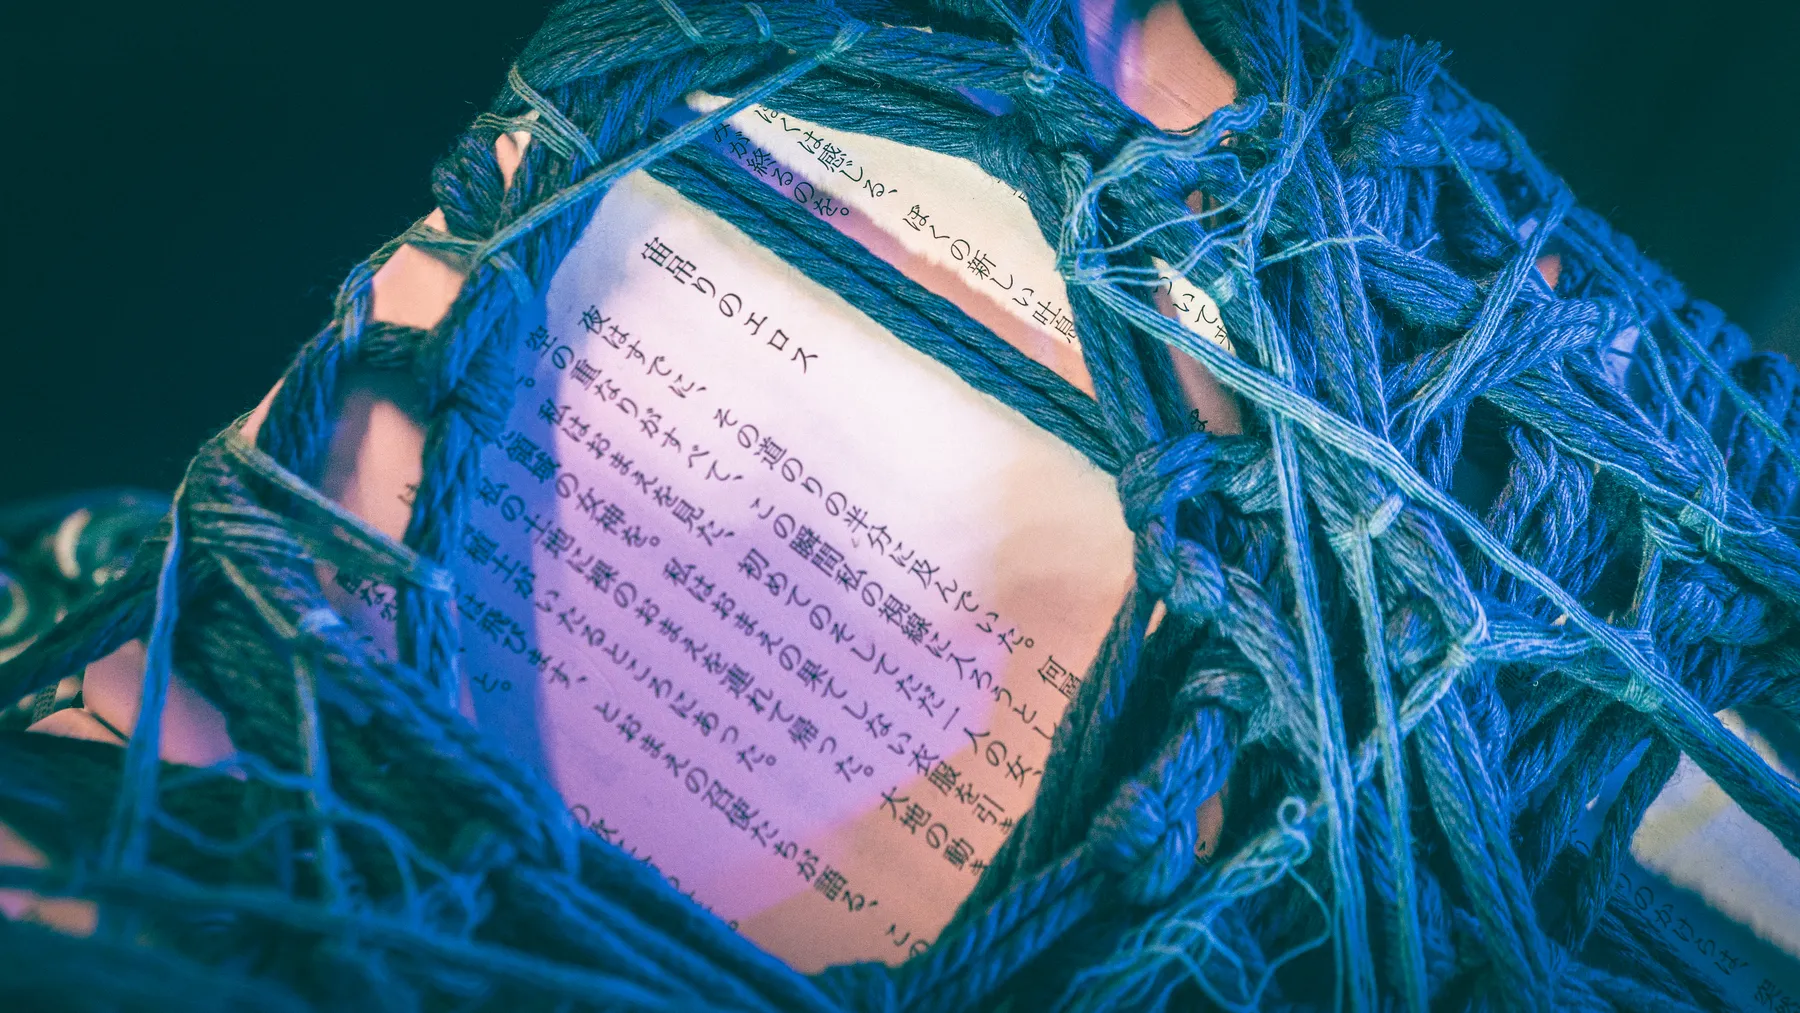 ぼくは感じる、ぼくの新しい吐息
みが終るのを。
宙吊りのエロス
夜はすでに、その道のりの半分に及んでいた。何層
空の重なりがすべて、この瞬間私の視線に入ろうとし
。私はおまえを見た、初めてのそしてただ一人の女、
領域の女神を。私はおまえの果てしない衣服を引き
私の土地に裸のおまえを連れて帰った。大地の動き
植土がいたるところにあった。
は飛びます、とおまえの召使たちが語る、この
と。
のかけらは、